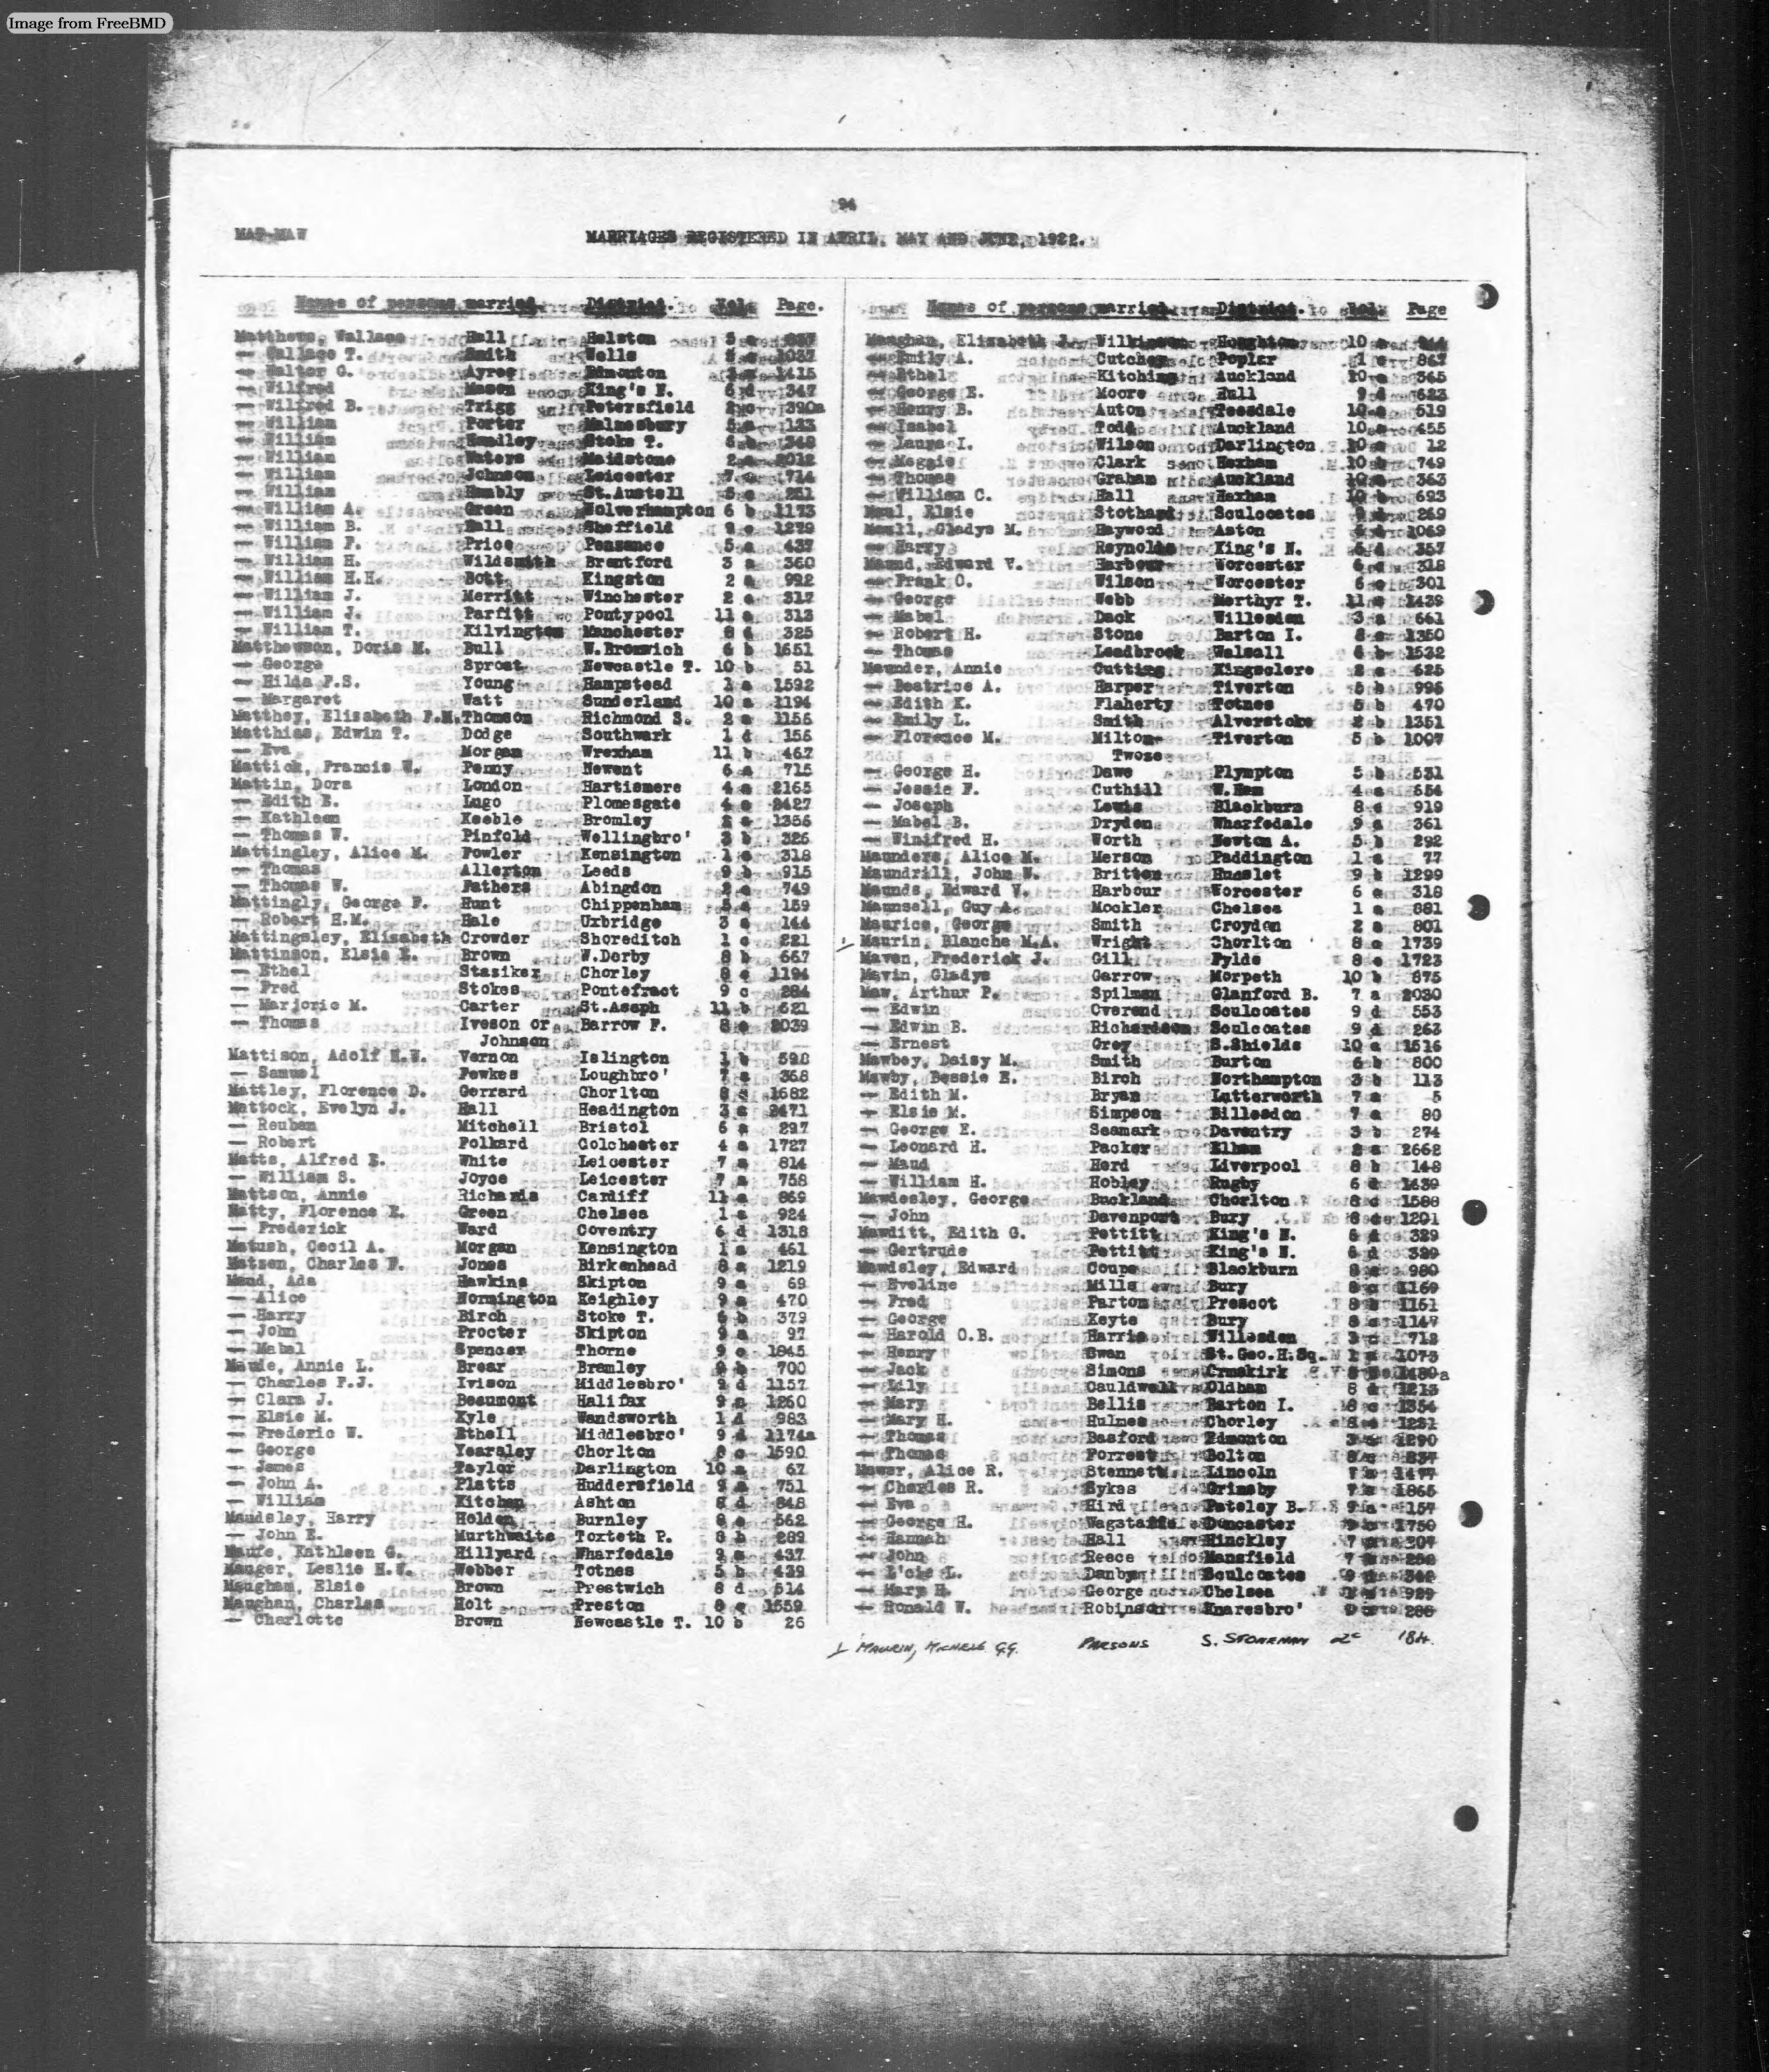 Image from FreeBMD
94
MAT-MAW
MARRIAGES REGISTERED IN APRIL, MAY AND JUNE, 1922.
Names of persons married. District. Vol. Page.
Matthews, Wallace Hall Helston 5 a
— Wallace T. Smith Wells 5 c 1037
— Walter G. Ayres Edmonton 3 a 1415
— Wilfred Mason King's N. 6 d 347
— Wilfred B. Trigg Petersfield 2 c 390a
— William Porter Malmesbury 5 a 133
— William Headley Stoke T. 6 b 348
— William Waters Maidstone 2 a 2012
— William Johnson Leicester 7 a 714
— William Hambly St.Austell 5 c 251
— William A. Green Wolverhampton 6 b 1173
— William B. Ball Sheffield 9 c 1279
— William F. Price Penzance 5 c 437
— William H. Wildsmith Brentford 3 a 360
— William H.H. Bott Kingston 2 a 992
— William J. Merritt Winchester 2 c 317
— William J. Parfitt Pontypool 11 a 313
— William T. Kilvington Manchester 8 d 325
Matthewson, Doris M. Bull W.Bromwich 6 b 1651
— George Sproat Newcastle T. 10 b 51
— Hilda F.S. Young Hampstead 1 a 1592
— Margaret Watt Sunderland 10 a 1194
Matthey, Elisabeth F.M. Thomson Richmond S. 2 a 1156
Matthias, Edwin T. Dodge Southwark 1 d 156
— Eva Morgan Wrexham 11 b 467
Mattick, Francis W. Penny Newent 6 a 715
Mattin, Dora London Hartismere 4 a 2165
— Edith E. Lugo Plomesgate 4 a 2427
— Kathleen Keeble Bromley 2 a 1356
— Thomas W. Pinfold Wellingbro' 3 b 326
Mattingley, Alice M. Fowler Kensington 1 a 318
— Thomas Allerton Leeds 9 b 915
— Thomas W. Fathers Abingdon 2 c 749
Mattingly, George F. Hunt Chippenham 5 a 159
— Robert H.M. Hale Uxbridge 3 a 144
Mattingsley, Elisabeth Crowder Shoreditch 1 c 221
Mattinson, Elsie E. Brown W.Derby 8 b 667
— Ethel Stasiker Chorley 8 e 1194
— Fred Stokes Pontefract 9 c 284
— Marjorie M. Carter St.Asaph 11 b 621
— Thomas Iveson or Barrow F. 8 e 2039
Johnson
Mattison, Adolf H.W. Vernon Islington 1 b 598
— Samuel Fewkes Loughbro' 7 a 368
Mattley, Florence D. Gerrard Chorlton 8 c 1682
Mattock, Evelyn J. Hall Headington 3 a 2471
— Reuben Mitchell Bristol 6 a 297
— Robert Folkard Colchester 4 a 1727
Matts, Alfred E. White Leicester 7 a 814
— William S. Joyce Leicester 7 a 758
Mattson, Annie Richards Cardiff 11 a 869
Matty, Florence E. Green Chelsea 1 a 924
— Frederick Ward Coventry 6 d 1318
Matush, Cecil A. Morgan Kensington 1 a 461
Matzen, Charles F. Jones Birkenhead 8 a 1219
Maud, Ada Hawkins Skipton 9 a 69
— Alice Normington Keighley 9 a 470
— Harry Birch Stoke T. 6 b 379
— John Procter Skipton 9 a 97
— Mabel Spencer Thorne 9 c 1845
Maude, Annie L. Brear Bramley 9 b 700
— Charles F.J. Ivison Middlesbro' 9 d 1157
— Clara J. Beaumont Halifax 9 a 1260
— Elsie M. Kyle Wandsworth 1 d 983
— Frederic W. Ethell Middlesbro' 9 d 1174a
— George Yearsley Chorlton 8 c 1590
— James Taylor Darlington 10 a 67
— John A. Platts Huddersfield 9 a 751
— William Kitchen Ashton 8 d 848
Maudsley, Harry Holden Burnley 8 e 562
— John E. Murthwaite Toxteth P. 8 b 289
Maufe, Kathleen G. Hillyard Wharfedale 9 a 437
Mauger, Leslie H.W. Webber Totnes 5 b 439
Maugham, Elsie Brown Prestwich 8 d 514
Maughan, Charles Holt Preston 8 e 1559
— Charlotte Brown Newcastle T. 10 b 26
Names of persons married. District. Vol. Page
Maughan, Elizabeth J. Wilkinson Houghton 10 a
— Emily A. Cutchey Poplar 1 c 867
— Ethel Kitching Auckland 10 a 365
— George E. Moore Hull 9 d 623
— Henry B. Auton Teesdale 10 a 519
— Isabel Todd Auckland 10 a 455
— Laura I. Wilson Darlington 10 a 12
— Meggie Clark Hexham 10 b 749
— Thomas Graham Auckland 10 a 363
— William C. Hall Hexham 10 b 693
Maul, Elsie Stothard Sculcoates 9 d 269
Maull, Gladys M. Haywood Aston 6 d 1069
— Harry Reynolds King's N. 6 d 357
Maund, Edward V. Harbour Worcester 6 c 318
— Frank O. Wilson Worcester 6 c 301
— George Webb Merthyr T. 11 a 1439
— Mabel Dack Willesden 3 a 661
— Robert H. Stone Barton I. 8 c 1350
— Thomas Leadbrook Walsall 6 b 1532
Maunder, Annie Cutting Kingsclere 2 c 625
— Beatrice A. Harper Tiverton 5 b 996
— Edith K. Flaherty Totnes 5 b 470
— Emily L. Smith Alverstoke 2 b 1351
— Florence M. Milton Tiverton 5 b 1007
Twose
— George H. Dawe Plympton 5 b 531
— Jessie F. Cuthill W.Ham 4 a 554
— Joseph Lewis Blackburn 8 e 919
— Mabel B. Dryden Wharfedale 9 a 361
— Winifred H. Worth Newton A. 5 b 292
Maunders, Alice M. Merson Paddington 1 a 77
Maundrill, John W. Britton Hunslet 9 b 1299
Maunds, Edward V. Harbour Worcester 6 c 318
Maunsell, Guy A. Mockler Chelsea 1 a 881
Maurice, George Smith Croydon 2 a 801
Maurin, Blanche M.A. Wright Chorlton 8 c 1739
Maven, Frederick J. Gill Fylde 8 e 1723
Mavin, Gladys Garrow Morpeth 10 b 875
Maw, Arthur P. Spilman Glanford B. 7 a 2030
— Edwin Overend Sculcoates 9 d 553
— Edwin B. Richardson Sculcoates 9 d 263
— Ernest Grey S.Shields 10 a 1516
Mawbey, Daisy M. Smith Burton 6 b 800
Mawby, Bessie E. Birch Northampton 3 b 113
— Edith M. Bryan Lutterworth 7 a 5
— Elsie M. Simpson Billesdon 7 a 80
— George E. Seamark Daventry 3 b 274
— Leonard H. Packer Elham 2 a 2662
— Maud Herd Liverpool 8 b 148
— William H. Hobley Rugby 6 d 1439
Mawdesley, George Buckland Chorlton 8 c 1588
— John Davenport Bury 8 c 1201
Mawditt, Edith G. Pettitt King's N. 6 d 329
— Gertrude Pettitt King's N. 6 d 329
Mawdsley, Edward Coupe Blackburn 8 e 980
— Eveline Mills Bury 8 c 1169
— Fred Parton Prescot 8 b 1161
— George Keyte Bury 8 c 1147
— Harold O.B. Harris Willesden 3 a 712
— Henry Swan St.Geo.H.Sq. 1 a 1073
— Jack Simons Ormskirk 8 b 1480a
— Lily Cauldwell Oldham 8 d 1213
— Mary Bellis Barton I. 8 c 1354
— Mary H. Hulmes Chorley 8 e 1231
— Thomas Basford Edmonton 3 a 1290
— Thomas Forrest Bolton 8 c 837
Mawer, Alice R. Stennett Lincoln 7 a 1477
— Charles R. Sykes Grimsby 7 a 1865
— Eva Hird Pateley B. 9 a 157
— George H. Wagstaffe Doncaster 9 c 1750
— Hannah Hall Hinckley 7 a 307
— John Reece Mansfield 7 b
— L'cie L. Danby Sculcoates 9 d
— Mary H. George Chelsea 1 a 929
— Ronald W. Robinson Knaresbro' 9 a
MAURIN, MICHELE G.G. PARSONS S. STONEHAM 2c 184.